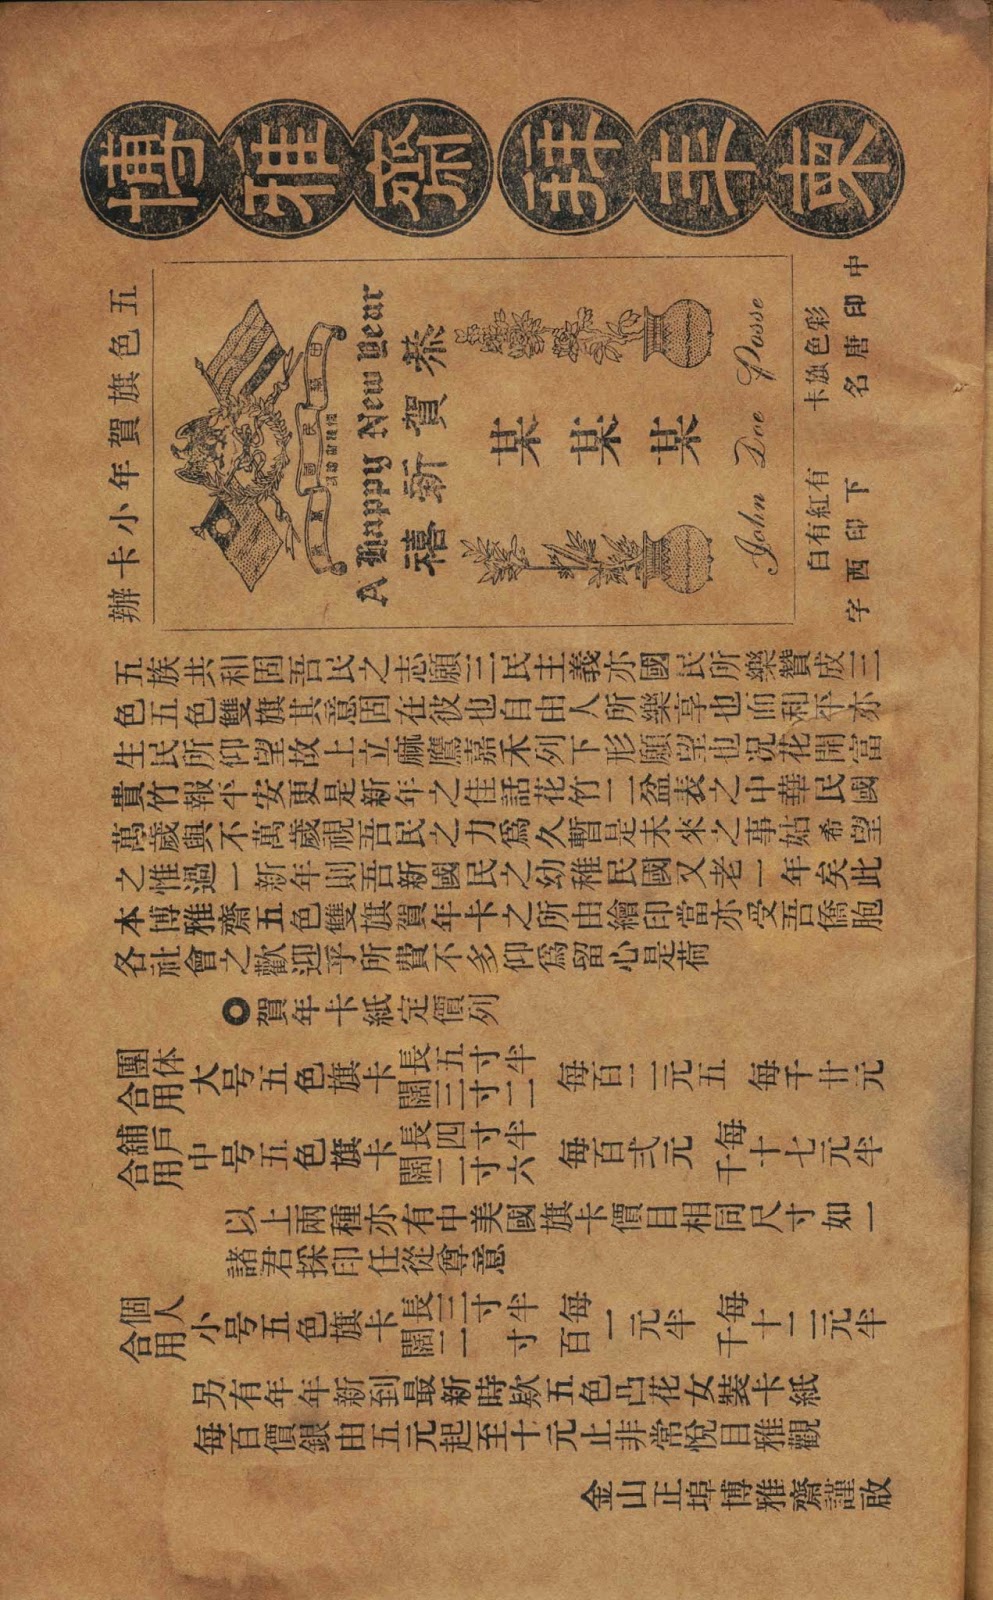 博雅齋拜年柬
五色旗賀年小卡辦
A Happy New Year
恭賀新禧
某某某
John Doe Posse
彩色旗卡 有紅有白
中印唐名 下印西字
五族共和固吾民之志願三民主義亦國民所樂贊成三
色五色雙旗其意固在彼也自由人所樂享也而和平亦
生民所仰望故上立麻鷹嘉禾列下形願望也況花開富
貴竹報平安更是新年之佳話花竹二盆表之中華民國
萬歲與不萬歲視吾民之力爲久暫是未來之事姑希望
之惟過一新年則吾新國民之幼稚民國又老一年矣此
本博雅齋五色雙旗賀年卡之所由繪印當亦受吾僑胞
各社會之歡迎乎所費不多仰爲留心是荷
賀年卡紙定價列
團体合用 大号五色旗卡 長五寸半 闊三寸二 每百二元五 每千廿元
舖戶合用 中号五色旗卡 長四寸半 闊二寸六 每百弍元 每千十七元半
以上兩種亦有中美國旗卡價目相同尺寸如一
諸君採印任從尊意
個人合用 小号五色旗卡 長三寸半 闊二寸 每百一元半 每千十二元半
另有年年新到最新時欵五色凸花女裝卡紙
每百價銀由五元起至十元止非常悅目雅觀
金山正埠博雅齋謹啟